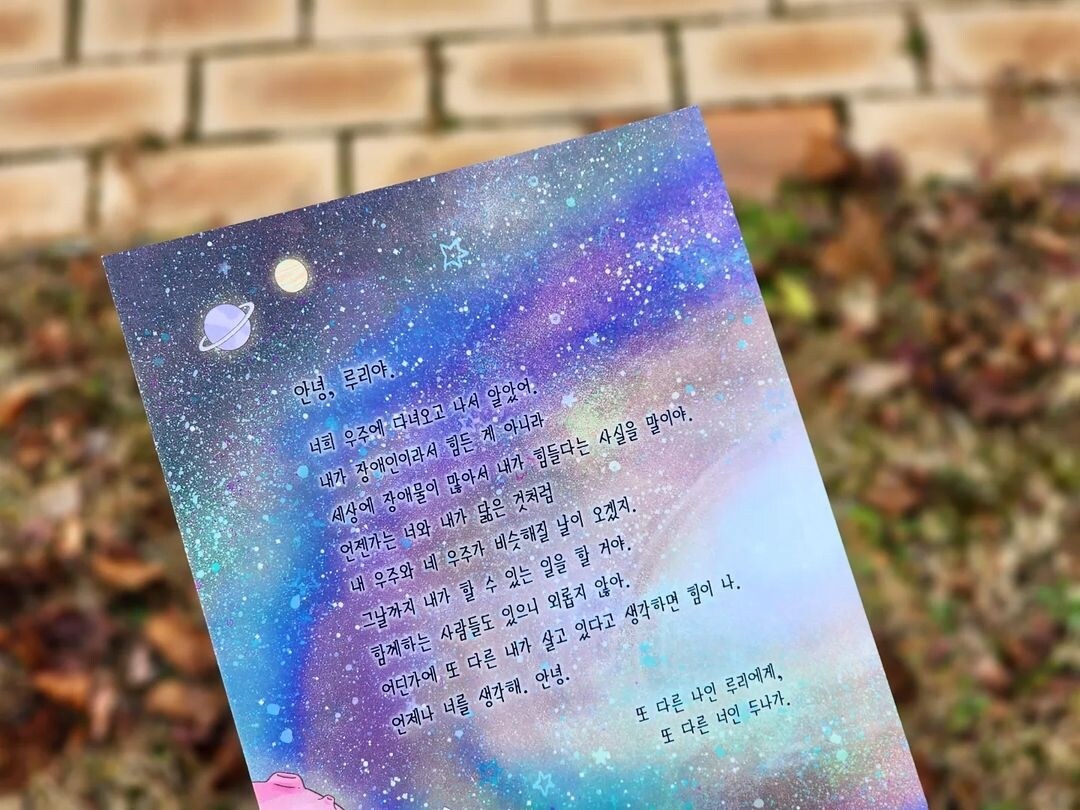 안녕, 루리야.
너희 우주에 다녀오고 나서 알았어.
내가 장애인이라서 힘든 게 아니라
세상에 장애물이 많아서 내가 힘들다는 사실을 말이야.
언젠가는 너와 내가 닮은 것처럼
내 우주와 네 우주가 비슷해질 날이 오겠지.
그날까지 내가 할 수 있는 일을 할 거야.
함께하는 사람들도 있으니 외롭지 않아.
어딘가에 또 다른 내가 살고 있다고 생각하면 힘이 나.
언제나 너를 생각해. 안녕.
또 다른 나인 루리에게,
또 다른 너인 두나가.